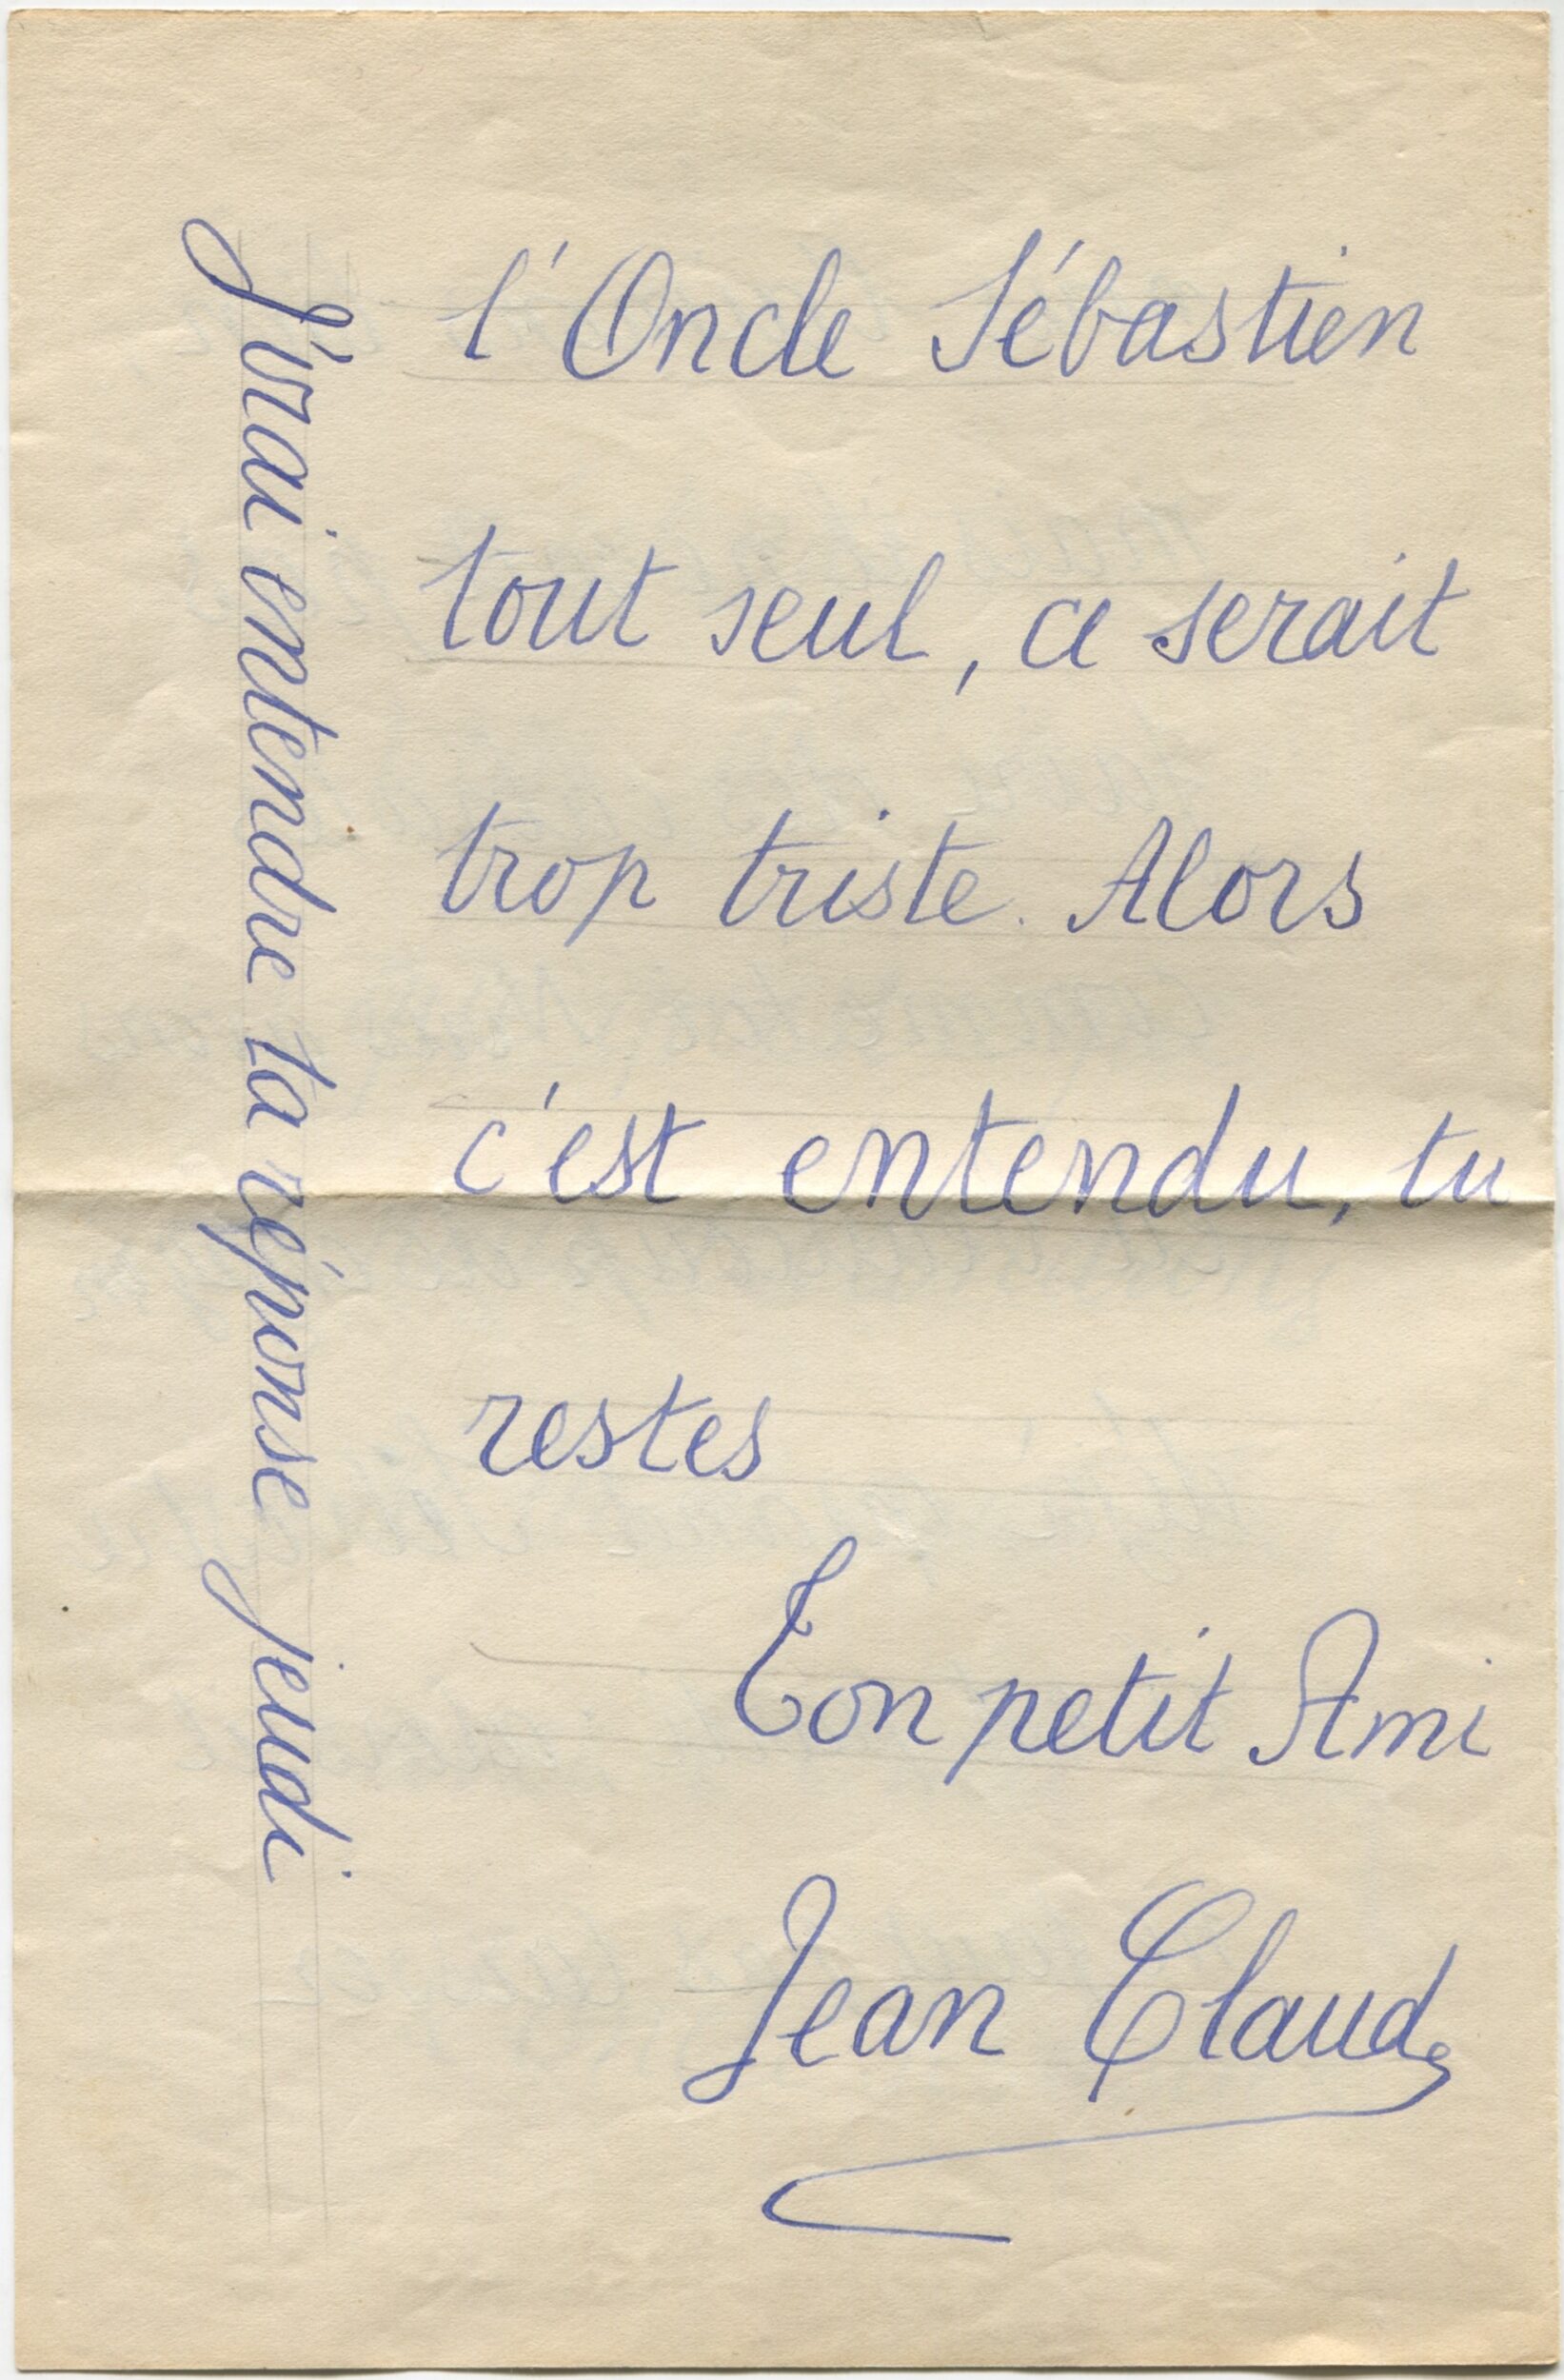 l'Oncle Sébastien
tout seul, ce serait
trop triste. Alors
c'est entendu, tu
restes
Ton petit Ami
Jean Claude
J'irai entendre ta réponse jeudi